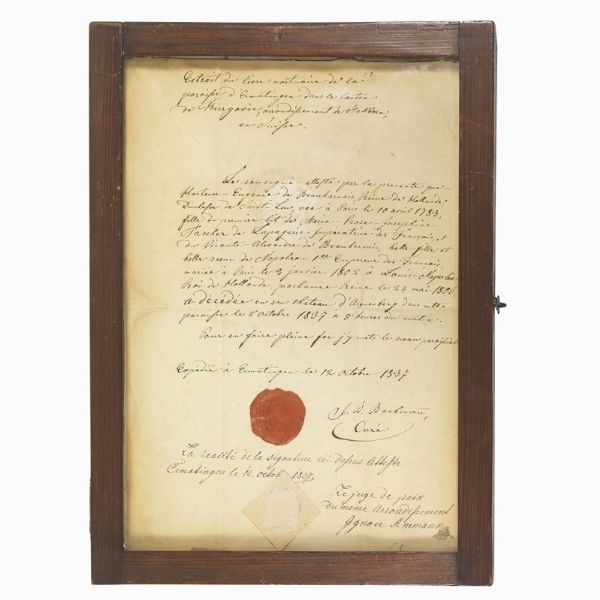 Extrait du livre mortuaire de la
paroisse d'Ermatingen dans le Canton
de Thurgovie, arrondissement de
en Suisse.
Le soussigné atteste par la presente que
Hortense Eugénie de Beauharnais, Reine de Hollande
Duchesse de Saint Leu, née à Paris le 10 avril 1783,
fille du premier lit de Marie Rose Josephine
Tascher de Lapagerie Imperatrice des Français et
du Vicomte Alexandre de Beauharnais, belle fille et
belle soeur de Napoleon 1er Empereur des Français,
mariée à Paris le 3 janvier 1802 à Louis Napoleon
Roi de Hollande, proclamée Reine le 24 mai 1806
a décédée en son château d'Arenenberg dans notre
paroisse le 5 octobre 1837 à 5 heures du matin.
Pour en faire pleine foi j'y mets le sceau paroissial
Expedié à Ermatingen le 12 Octobre 1837
Curé
La réalité de la signature ci-dessus Atteste
Ermatingen le 12 octob 1837.
Le juge de paix
Du même Arrondissement
Ignace Ammann